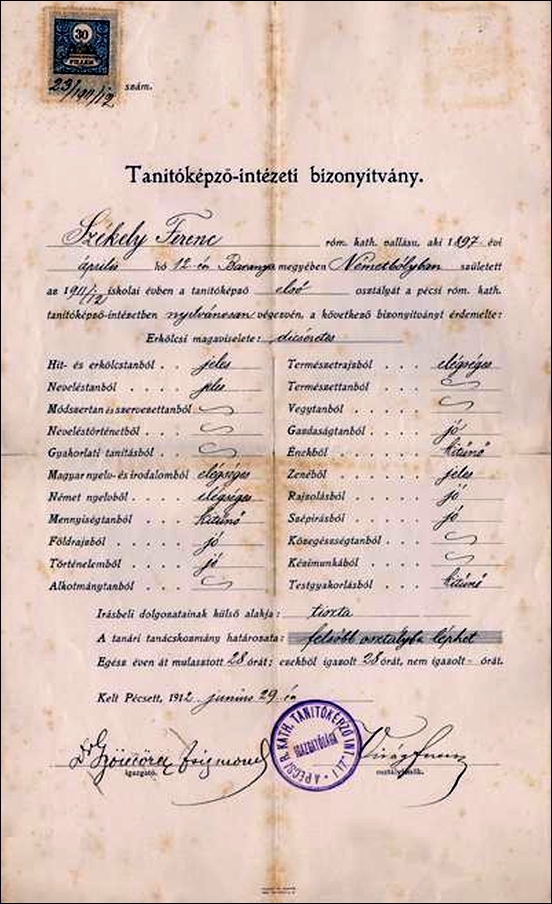 30
FILLÉR
23/1911/12 szám.
Tanitóképző-intézeti bizonyitvány.
Székely Ferenc róm. kath. vallásu, aki 1897. évi
április hó 12-én Baranya megyében Németbólyban született
az 1911/12 iskolai évben a tanitóképző első osztályát a pécsi róm. kath.
tanitóképző-intézetben nyilvánosan végezvén, a következő bizonyitványt érdemelte:
Erkölcsi magaviselete: dicséretes
Hit- és erkölcstanból . . . jeles
Neveléstanból . . . jeles
Módszertan és szervezettanból
Neveléstörténetből . . .
Gyakorlati tanitásból . .
Magyar nyelv- és irodalomból elégséges
Német nyelvből . . . . elégséges
Mennyiségtanból . . . kitünő
Földrajzból . . . . jó
Történelemből . . . . jó
Alkotmánytanból . . .
Természetrajzból . . . . elégséges
Természettanból . . . .
Vegytanból . . . .
Gazdaságtanból . . . . jó
Énekből . . . . . kitünő
Zenéből . . . . . jeles
Rajzolásból . . . . jó
Szépirásból . . . . jó
Közegészségtanból . . .
Kézimunkából . . . .
Testgyakorlásból . . . . kitünő
Irásbeli dolgozatainak külső alakja: tiszta
A tanári tanácskozmány határozata: felsőbb osztályba léphet
Egész éven át mulasztott 28 órát; ezekből igazolt 28 órát, nem igazolt - órát.
Kelt Pécsett, 1912 junius 29-én
A PÉCSI R. KATH. TANITÓKÉPZŐ INT.
IGAZGATÓSÁGA
igazgató.
osztályfőnök.